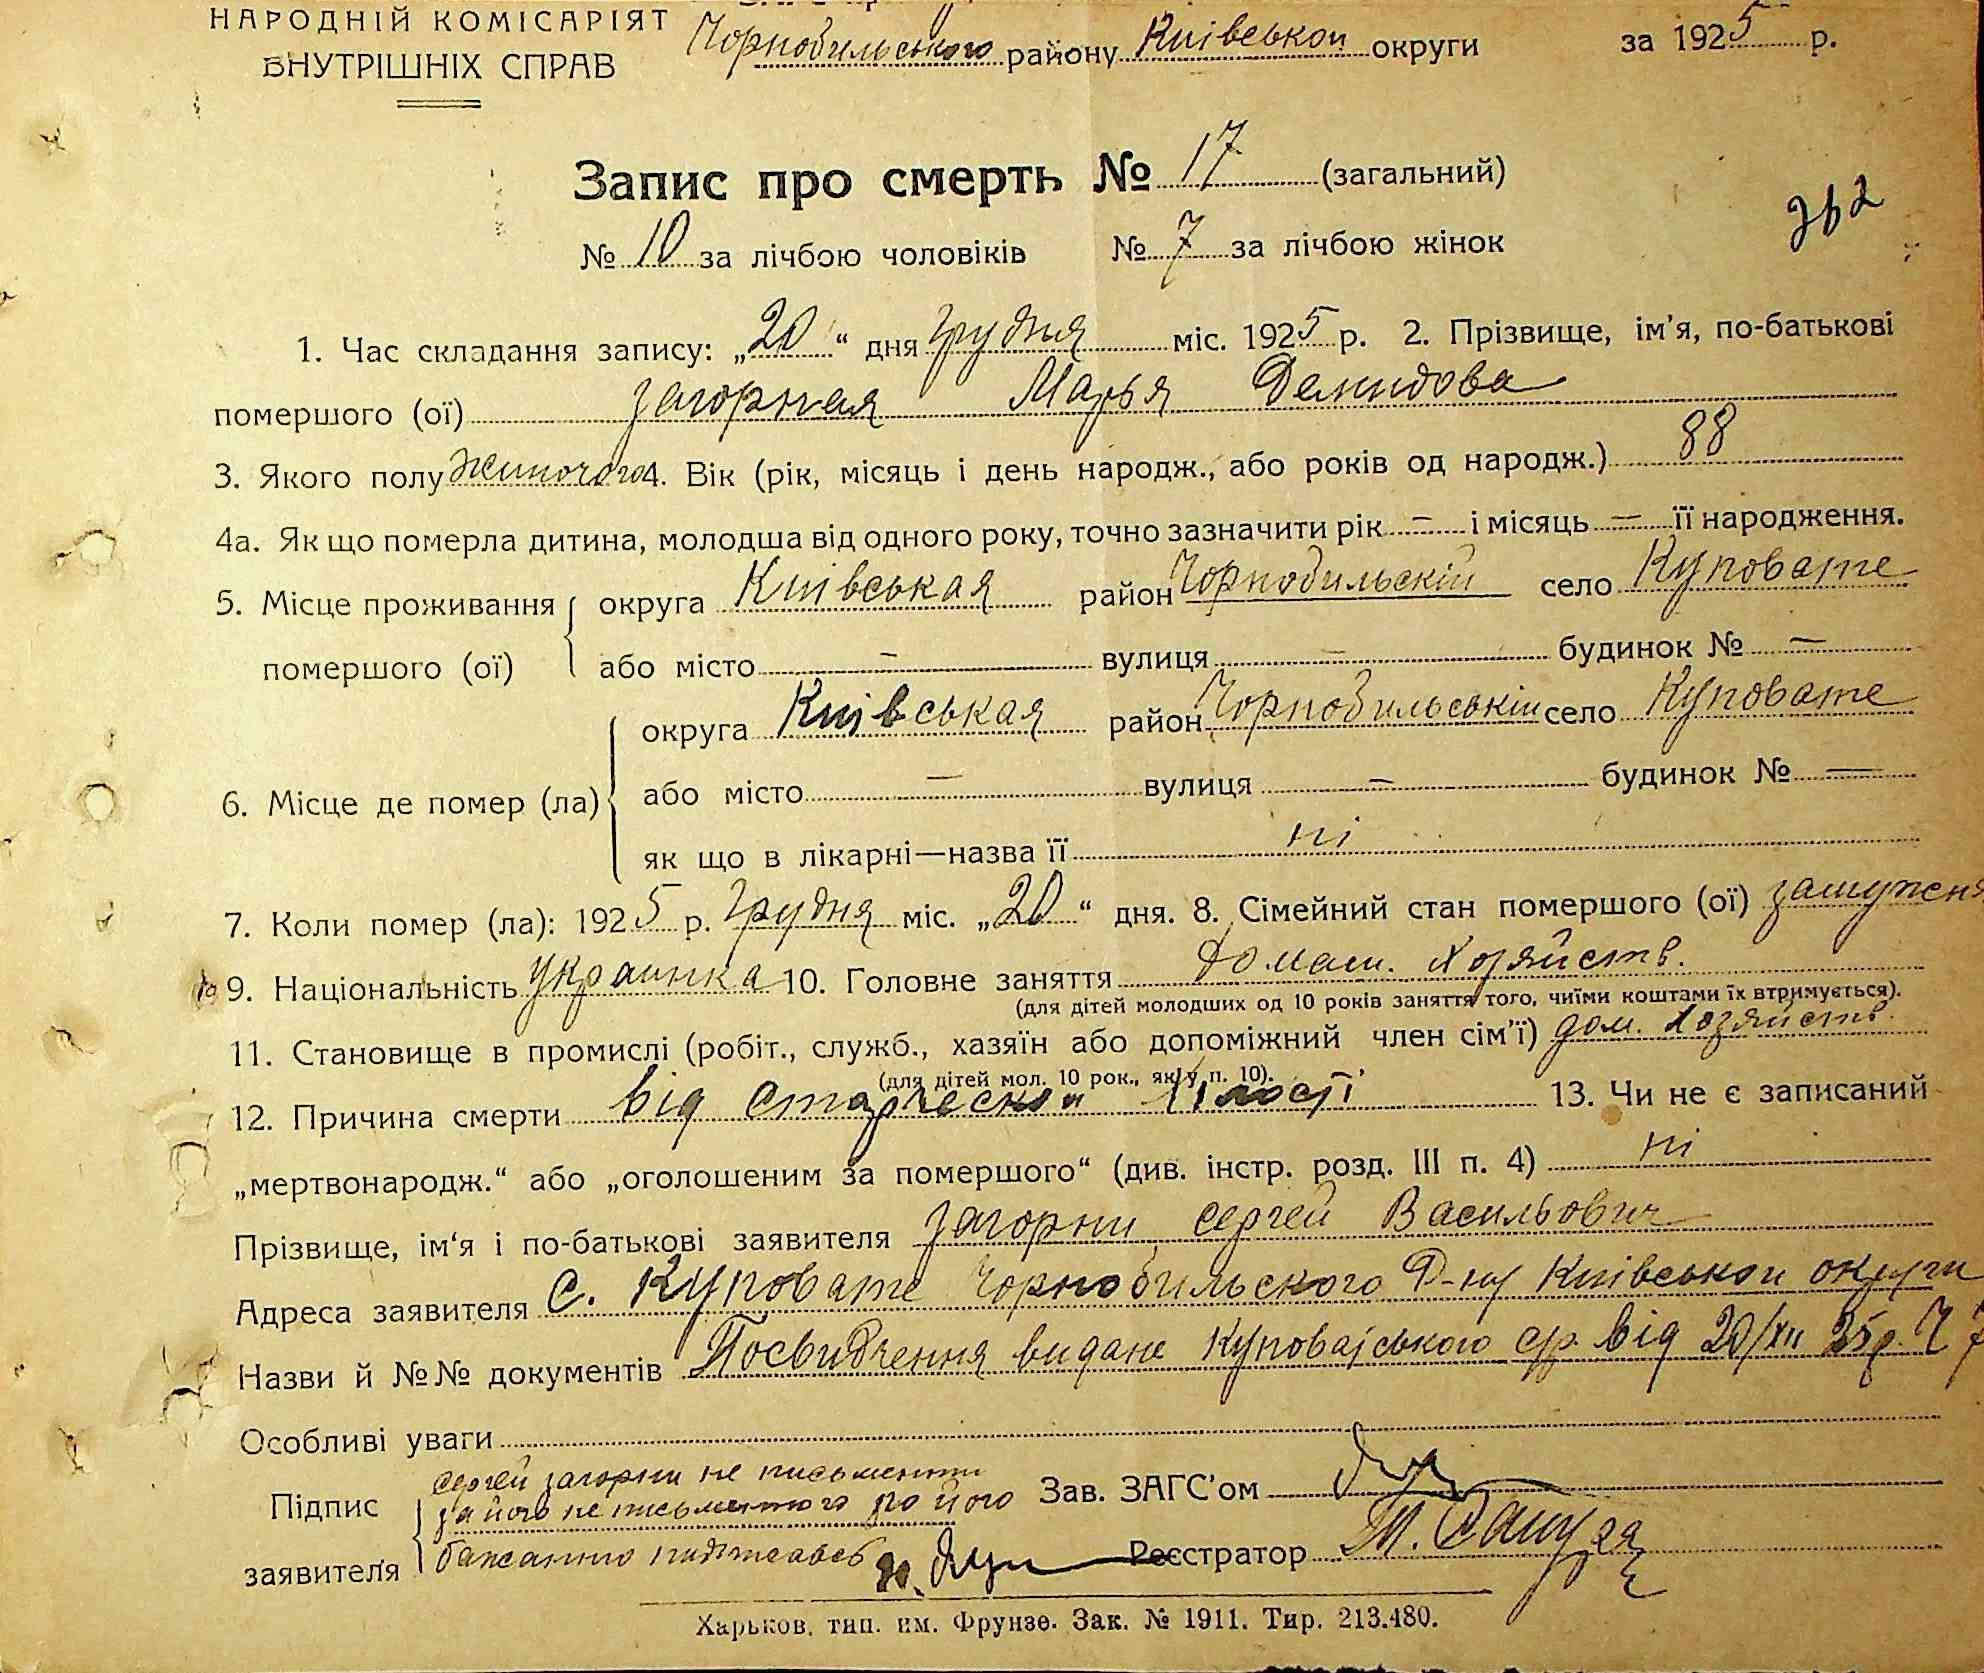 НАРОДНІЙ КОМІСАРІЯТ
ВНУТРІШНІХ СПРАВ
Чорнобильського району Київськои округи за 1925 р.
Запис про смерть № 17 (загальний)
262
№ 10 за лічбою чоловіків № 7 за лічбою жінок
1. Час складання запису: „20“ дня Грудня міс. 1925 р. 2. Прізвище, ім'я, по-батькові
помершого (ої) Загорная Марья Демидова
3. Якого полу Жиночого 4. Вік (рік, місяць і день народж., або років од народж.) 88
4а. Як що померла дитина, молодша від одного року, точно зазначити рік – і місяць – її народження.
5. Місце проживання округа Київськая район Чорнобильскій село Куповате
помершого (ої) або місто – вулиця – будинок № –
округа Київськая район Чорнобильській село Куповате
6. Місце де помер (ла) або місто – вулиця – будинок № –
як що в лікарні—назва її ні
7. Коли помер (ла): 1925 р. Грудня міс. „20“ дня. 8. Сімейний стан помершого (ої) замужня
9. Національність Украинка 10. Головне заняття Домаш. Хозяйств.
(для дітей молодших од 10 років заняття того, чиїми коштами їх втримується).
11. Становище в промислі (робіт., служб., хазяїн або допоміжний член сім'ї) дом. Хозяйств.
(для дітей мол. 10 рок., як у п. 10).
12. Причина смерти від старческой 13. Чи не є записаний
„мертвонародж.“ або „оголошеним за помершого“ (див. інстр. розд. III п. 4) ні
Прізвище, ім'я і по-батькові заявителя Загорни Сергей Васильович
Адреса заявителя С. Куповате Чорнобильского Р-ну Київськои округи
Назви й №№ документів Посвидчення видане Куповатського с/р. від 20/XII 25 р. Ч 7
Особливі уваги
Підпис заявителя Сергей Загорни не письменни
за його не письменного по його
бажанню пидписавсь
Зав. ЗАГС'ом
Реєстратор
Харьков. тип. им. Фрунзе. Зак. № 1911. Тир. 213.480.